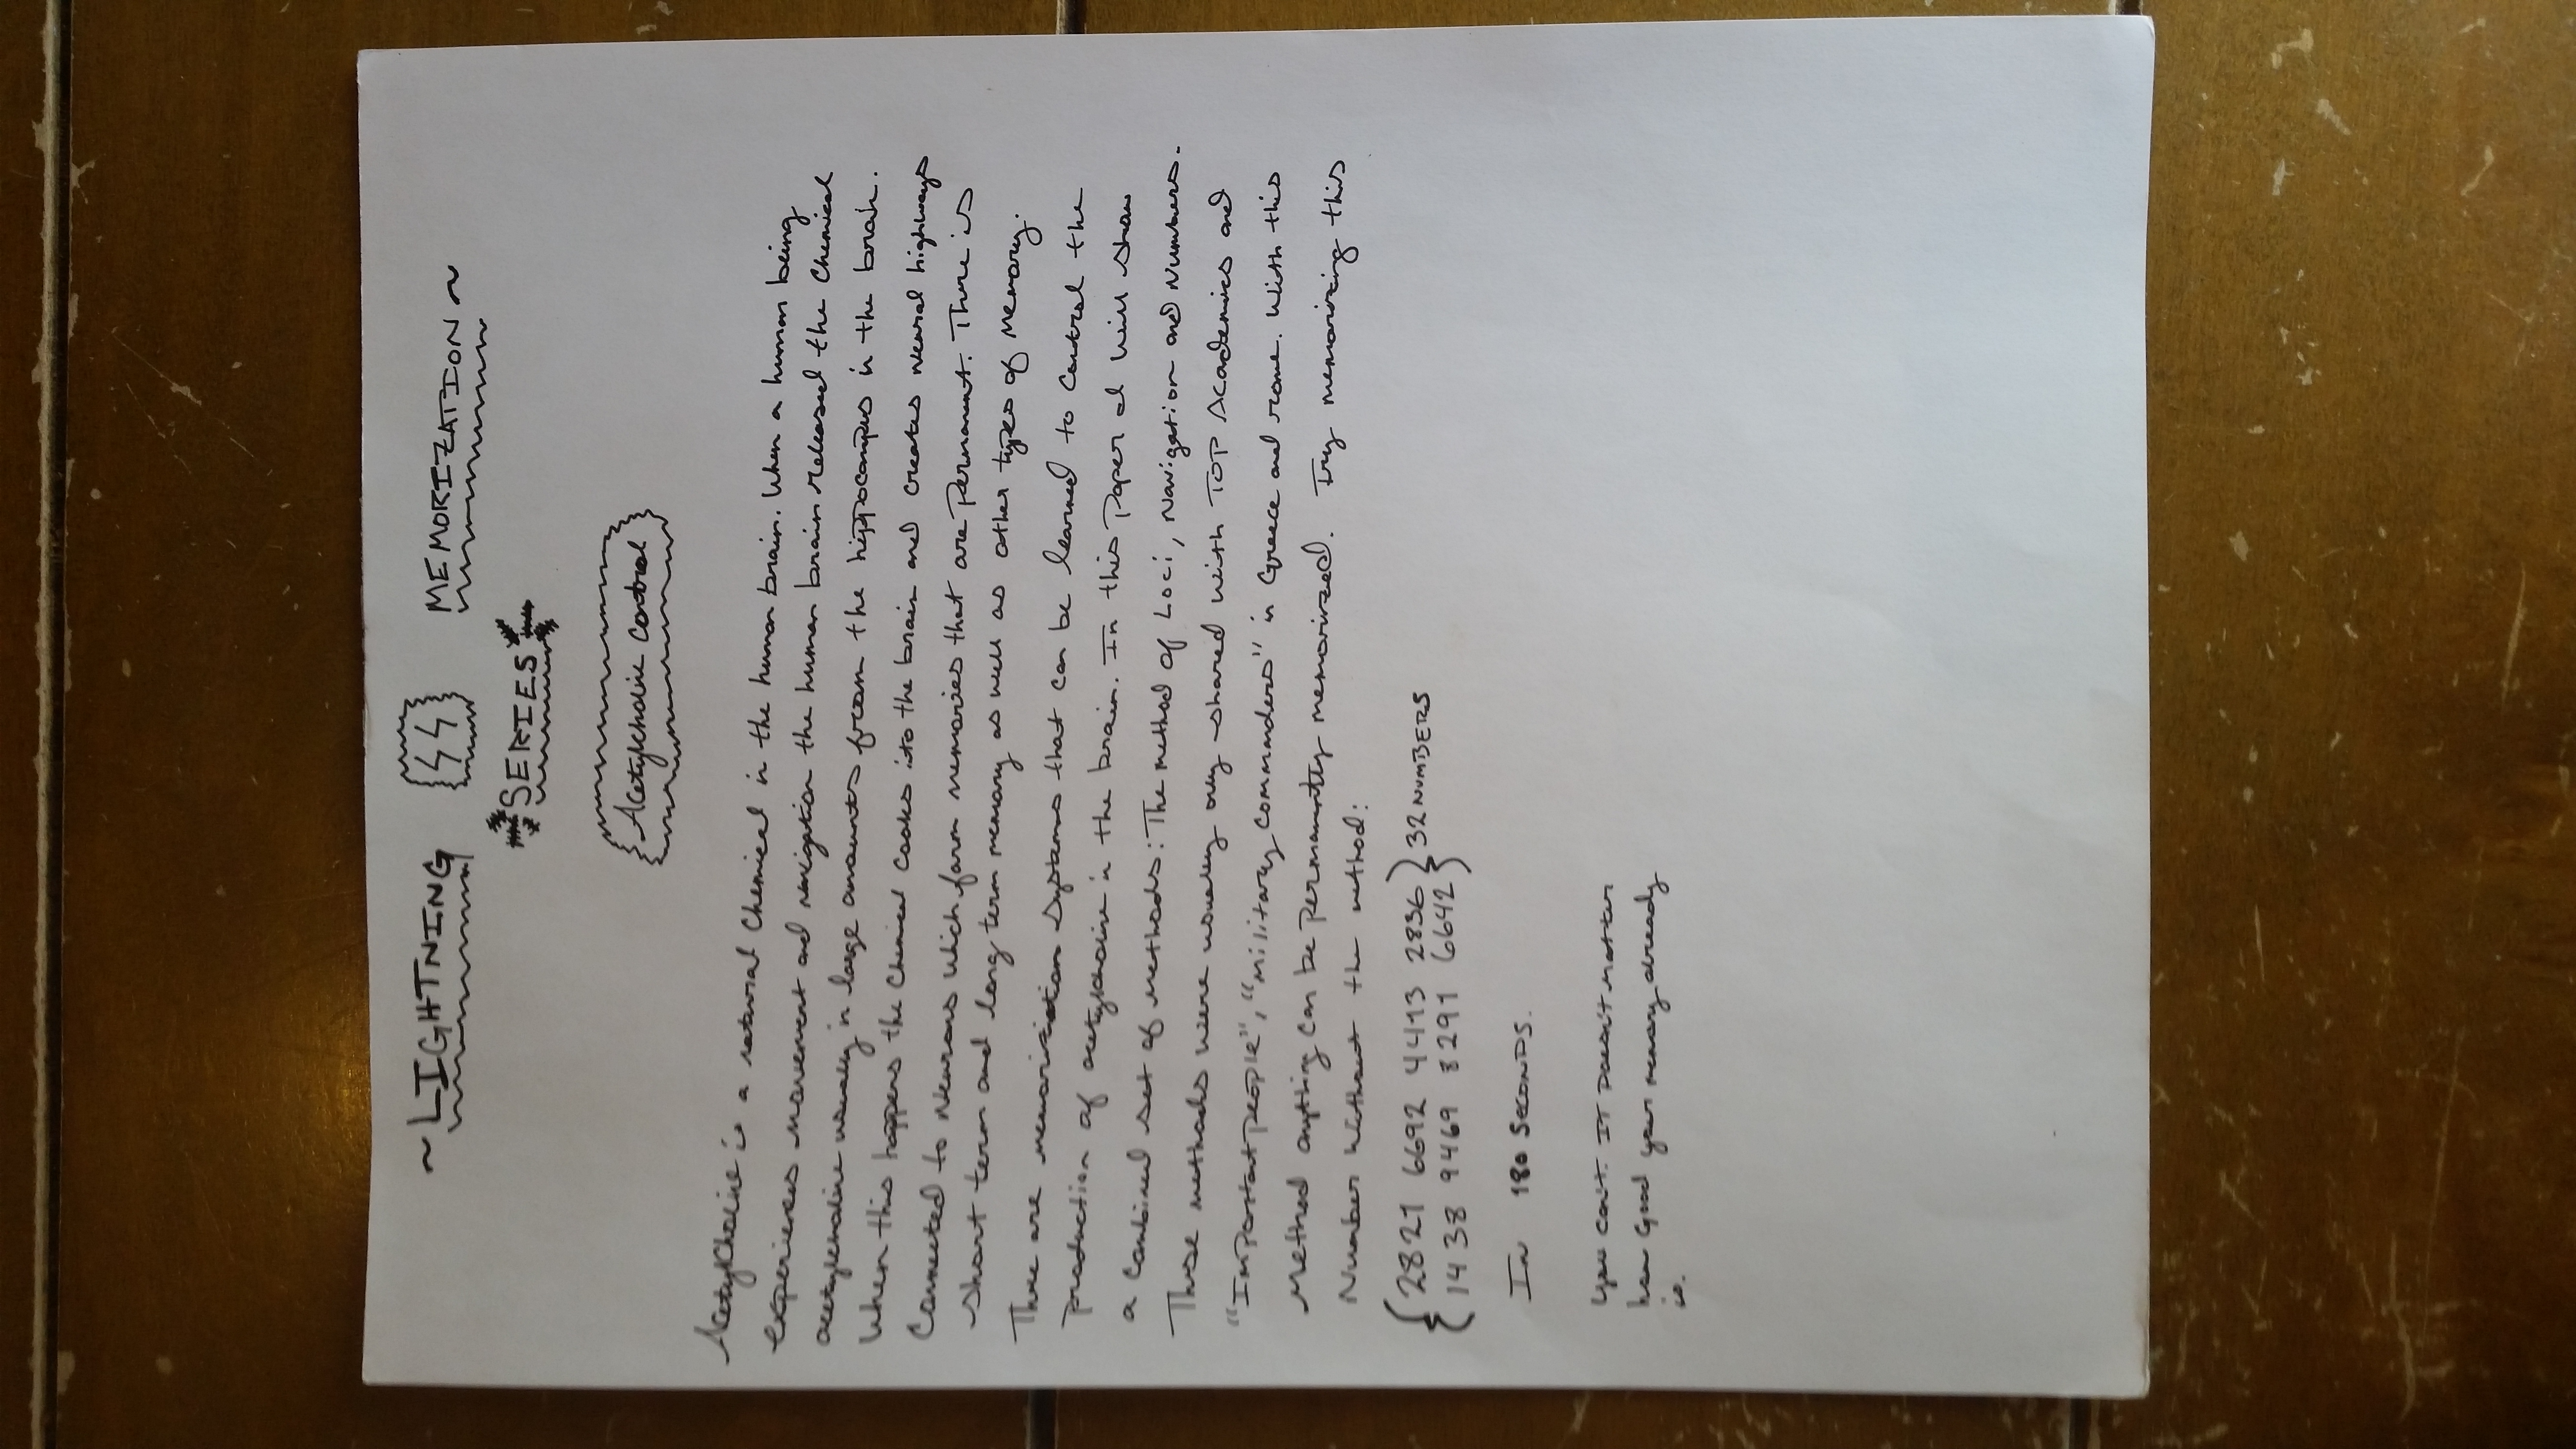 ~ LIGHTNING MEMORIZATION ~
SERIES
Acetylcholine Control
Acetylcholine is a natural Chemical in the human brain. When a human being
experiences movement and navigation the human brain released the Chemical
acetylcholine usually in large amounts from the hippocampus in the brain.
When this happens the Chemical Cooks into the brain and creates neural highways
Connected to Neurons which form memories that are Permanent. There is
short term and long term memory as well as other types of Memory.
There are memorization Systems that can be learned to Control the
production of acetylcholine in the brain. In this Paper I will show
a combined set of methods: The method of Loci, Navigation and Numbers.
These methods were usually only shared with TOP Academics and
"Important people", "military commanders" in Greece and rome. With this
Method anything can be permanently memorized. Try memorizing this
Number without the method:
2821 6692 4413 2836 32 NUMBERS
1438 9469 8291 6642
In 180 SECONDS.
You can't. IT Doesn't matter
how Good your memory already
is.